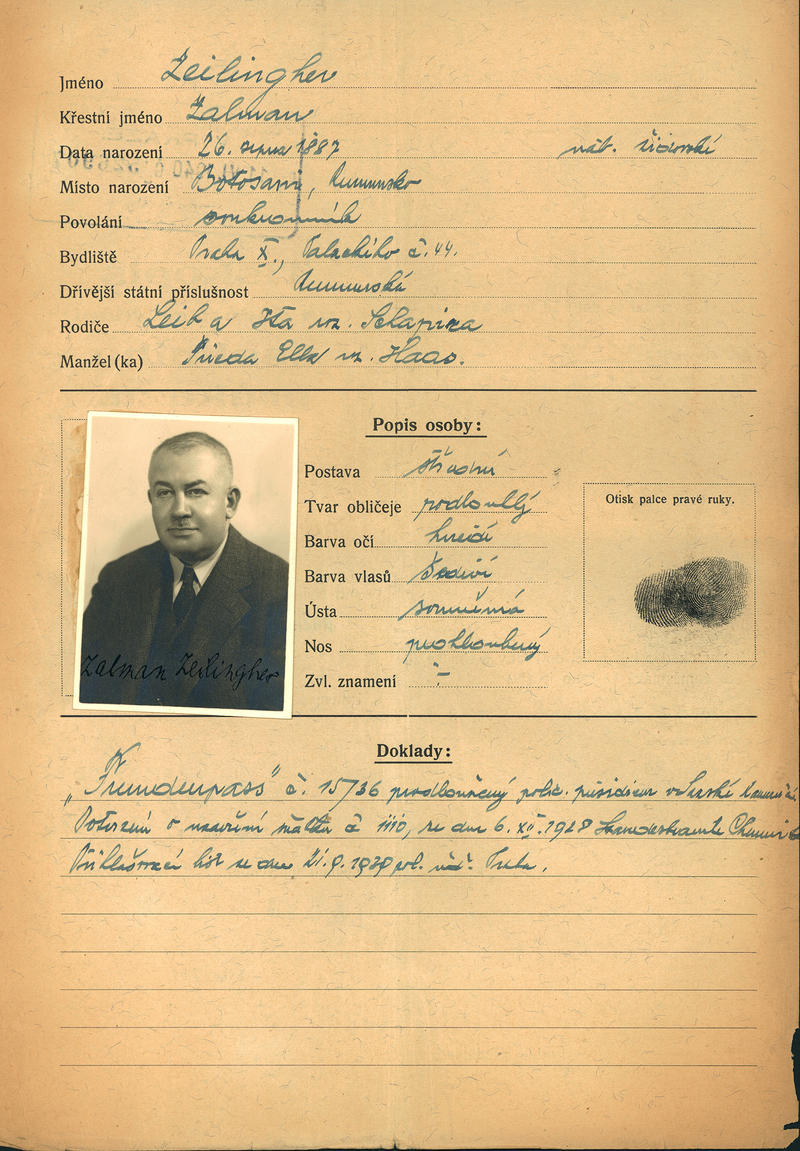 Jméno Zeilingher
Křestní jméno Zalman
Data narození 26. srpna 1887 náb. židovské
Místo narození Botosani, Rumunsko
Povolání soukromník
Bydliště Praha X., Palackého č. 44.
Dřívější státní příslušnost Rumunská
Rodiče Leib a Ita roz. Schapira
Manžel (ka) Frieda Ella roz. Haas.
Popis osoby:
Postava střední
Tvar obličeje podlouhlý
Barva očí hnědé
Barva vlasů šedivé
Ústa souměrná
Nos prohloubený
Zvl. znamení -:-
Otisk palce pravé ruky.
Zalman Zeilingher
Doklady:
„Fremdenpass" č. 15/36 prodloužený polic.
Potvrzení o uzavření sňatku č. 1110, ze dne 6. XII. 1928 Standesbeamte
Přihlašovací list ze dne 21. 9. 1939 pol. řed. Praha.